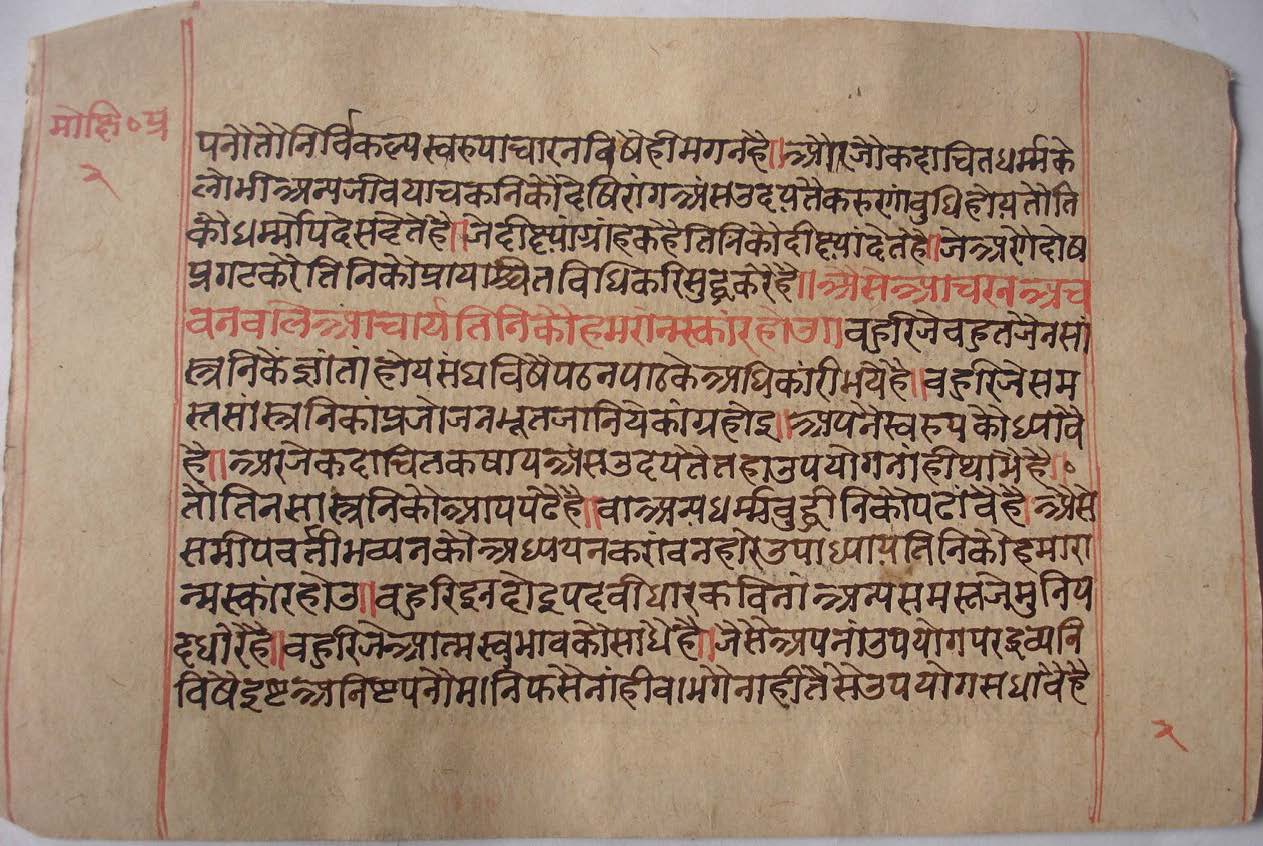 मोक्षि०प्र
२
पनौतौनिर्विकल्पस्वरुपाचारनविषेहीमगनहै॥औरजौकदाचितधर्म्मके
लोभीअन्यजीवयाचकनिकौदेषिरांगअंसउदयतैकरुणांवुधिहोयतौति
कौधर्म्मोपदेसदेतेहै॥जेदीक्ष्यांग्राहकहैतिनिकोदीक्ष्यांदेतेहै॥जेअपणेदोष
प्रगटकरेतिनिकोप्रायाश्चितविधिकरिसुद्धकरेहै॥अैसेआचरनअच
वनवलिआचार्यतिनिकौहमरोन्मस्कांरहोउ॥वहुरिजेवहुतजैनसां
स्त्रनिकेज्ञातांहोयसंघविषैपठनपाठकेअधिकांरीभयेहै॥वहुरिजेसम
स्तसांस्त्रनिकांप्रजोजनभूतजानियेकांग्रहोइ॥अपनैस्वरुपकोध्यावै
है॥अरजेकदाचितकषायअंसउदयतैतहाउपयोगनांहीथांभैहै॥०
तोतिनसास्त्रनिकोआपपढेहै॥वाअन्यधर्म्मवुद्धीनिकोपढांवैहैअैसे
समीपवर्त्तीभव्यनकौअध्ययनकरांवनहारेउपाध्यायतिनिकौहमारा
न्मस्कांरहोउ॥वहुरिइनदोइपदवीधारकविनांअन्यसमस्तजेमुनिप
दधारेहै॥वहुरिजेआत्मस्वभावकौसाधैहै॥जैसेअपनांउपयोगपरद्रव्यनि
विषैइष्टअनिष्टपनौमांनिफसैनांहीवाभगेनाहीतैसेउपयोगसधावैहै
२